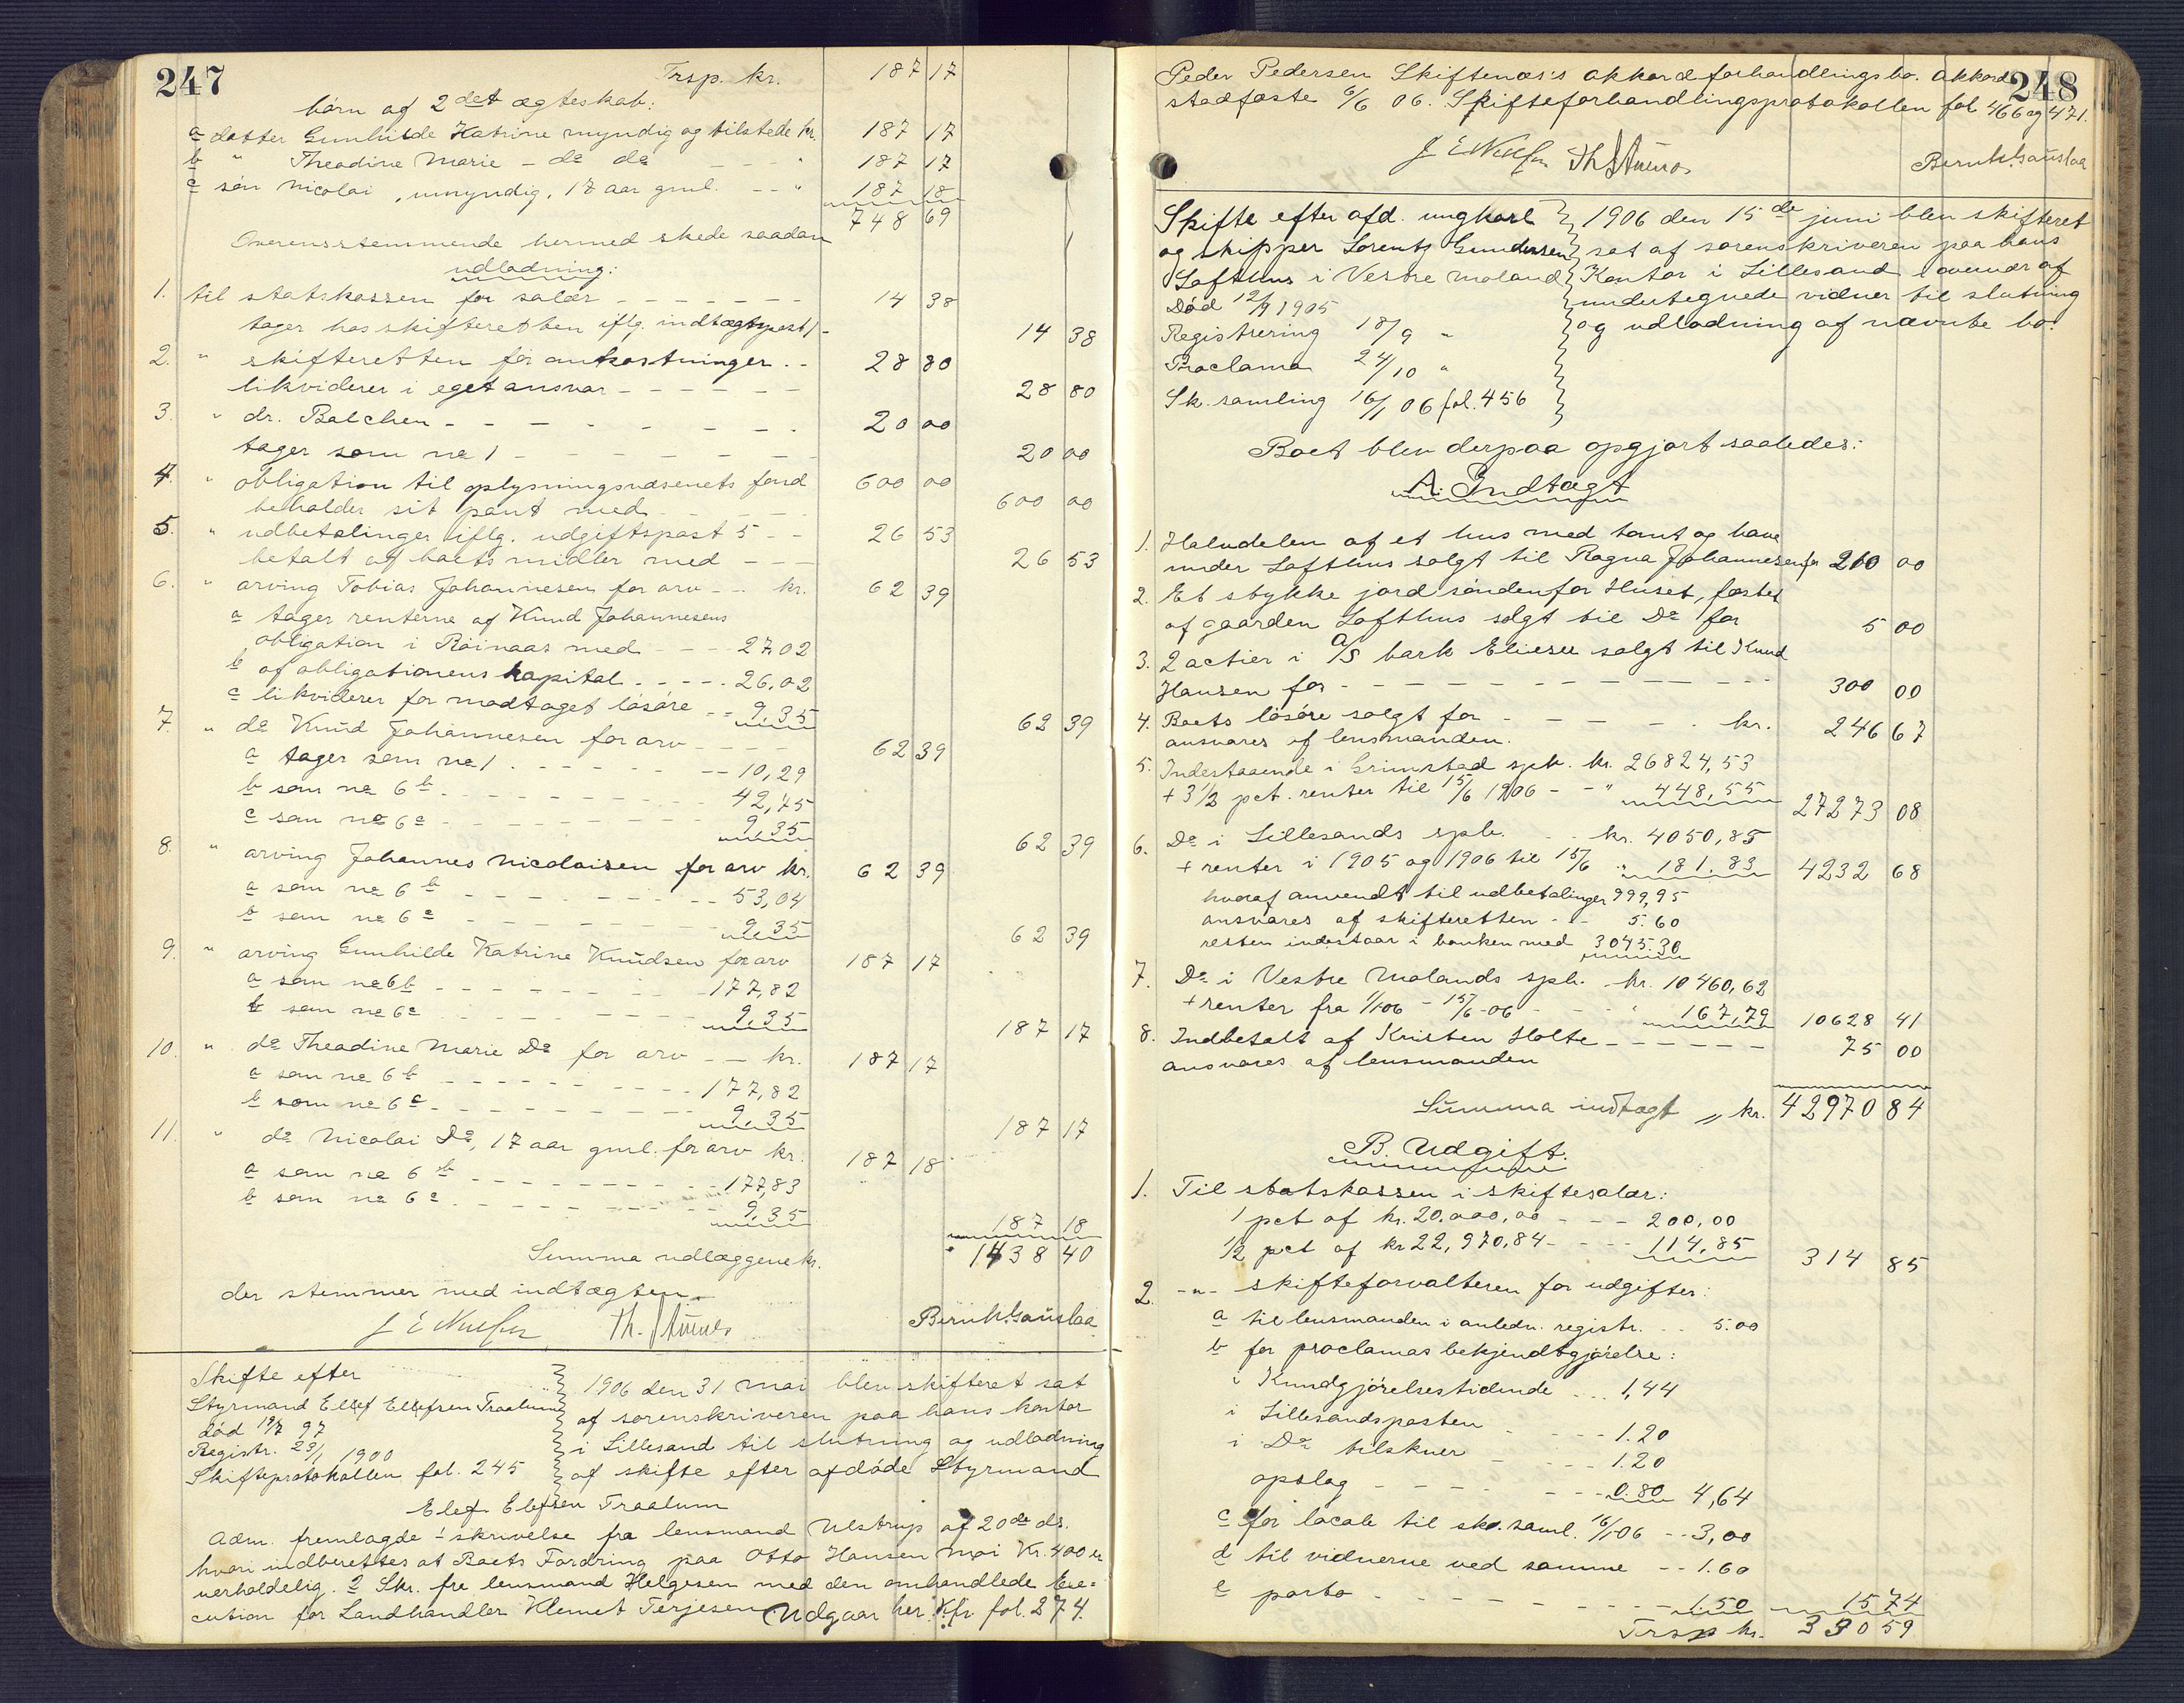 247
Trsp. kr. 187 17
børn af 2det ægteskab:
a datter Gunhilde Katrine myndig og tilstede kr. 187 17
b " Theodine Marie - do do - - - " 187 17
c søn Nicolai, umyndig, 17 aar gml. - - " 187 18
748 69
Overensstemmende hermed skede saadan
udlodning:
1. til statskassen for salær - - - - - - - 14 38
tager hos skifteretten iflg. indtægtspost 1 - 14 38
2. " skifteretten for omkostninger - - 28 80
likviderer i eget ansvar - - - - - 28 80
3. " dr. Balchen - - - - - - - 20 00
tager som no 1 - - - - - - - 20 00
4. " obligation til oplysningsvæsenets fond 600 00
beholder sit pant med - - - - 600 00
5. " udbetalinger iflg. udgiftspost 5 - - 26 53
betalt af boets midler med - - - 26 53
6. " arving Tobias Johannesen for arv - - kr. 62 39
a tager renterne af Knud Johannesens
obligation i Röinaas med - - - 27,02
b af obligationens kapital - - - - 26,02
c likviderer for modtaget løsøre - - 9,35 62 39
7. " do Knud Johannesen for arv - - - - 62 39
a tager som no 1 - - - - - - - 10,29
b som no 6 b - - - - - - - 42,75
c som no 6 c - - - - - - - 9,35 62 39
8. " arving Johannes Nicolaisen for arv kr. 62 39
a som no 6 b - - - - - - - 53,04
b som no 6 c - - - - - - - 9,35 62 39
9. " arving Gunhilde Katrine Knudsen for arv 187 17
a som no 6 b - - - - - - - 177,82
b som no 6 c - - - - - - - 9,35 187 17
10. " do Theodine Marie Do for arv - - kr. 187 17
a som no 6 b - - - - - - - 177,82
b som no 6 c - - - - - - - 9,35 187 17
11. " do Nicolai Do, 17 aar gml. for arv kr. 187 18
a som no 6 b - - - - - - - 177,83
b som no 6 c - - - - - - - 9,35 187 18
Summa udlæggene kr. 1438 40
der stemmer med indtægten.
Bernh. Gauslaa
Skifte efter
Styrmand Ellef Ellefsen Traalum
død 19/7 97
Registr. 23/1 1900
Skifteprotokollen fol. 245
1906 den 31 mai blev skifteret sat
af sorenskriveren paa hans kontor
i Lillesand til slutning og udlodning
af skifte efter afdøde Styrmand
Elef Elefsen Traalum
Adm. fremlagde 1 skrivelse fra lensmand Ulstrup af 20de ds.
hvori indberettes at Boets Fordring paa Otto Hansen Moi Kr. 400 er
uerholdelig. 2 Skr. fra lensmand Helgesen med den omhandlede Exe-
cution for Landhandler Klemet Terjesen Udgaar her. Kfr. fol. 274.
248
Peder Pedersen Skiftenæs's akkordforhandlingsbo. Akkord
stadfæste 6/6 06. Skifteforhandlingsprotokollen fol 466 og 471.
Bernh. Gauslaa
Skifte efter afd. ungkarl
og skipper Lorents Gundersen
Lofthus i Vestre Moland
Død 12/9 1905
Registrering 18/9 "
Proclama 24/10 "
Sk. samling 16/1 06 fol. 456
1906 den 15de juni blev skifteret
sat af sorenskriveren paa hans
Kontor i Lillesand i overvær af
undertegnede vidner til slutning
og udlodning af nævnte bo.
Boet blev derpaa opgjort saaledes:
A. Indtægt
1. Halvdelen af et hus med tomt og have
under Lofthus solgt til Ragna Johannesen for 210 00
2. Et stykke jord søndenfor Huset, fæstet
af gaarden Lofthus solgt til Do for 5 00
3. 2 actier i A/S bark Elieser solgt til Knud
Hansen for - - - - - - - - - - 300 00
4. Boets løsøre solgt for - - - - - kr. 246 67
ansvares af lensmanden.
5. Indestaaende i Grimstad spb. kr. 26824,53
+ 3 1/2 pct. renter til 15/6 1906 - - " 448,55 27273 08
6. Do i Lillesands spb. - - kr. 4050,85
+ renter i 1905 og 1906 til 15/6 " 181,83 4232 68
hvoraf anvendt til udbetalinger 999,95
ansvares af skifteretten - - 5.60
resten indestaar i banken med 3045.30
7. Do i Vestre Molands spb. - kr. 10460,62
+ renter fra 1/1 06 - 15/6 06 - - " 167,79 10628 41
8. Indbetalt af Kristen Holte - - - - - - 75 00
ansvares af lensmanden
Summa indtægt " kr. 42970 84
B. Udgift.
1. Til statskassen i skiftesalær:
1 pct af kr. 20.000,00 - - - 200,00
1/2 pct af kr 22,970,84 - - - 114,85 314 85
2. -"- skifteforvalteren for udgifter:
a til lensmanden i anledn. registr. - - 5.00
b for proclamas bekjendtgjørelse:
i Kundgjørelsestidende - - - 1,44
i Lillesandsposten - - - - 1.20
i Do tilskuer - - - - 1.20
opslag - - - - - - - 0.80 4,64
c for locale til sk. saml. 16/1 06 - - 3,00
d til vidnerne ved samme - - 1.60
e porto - - - - - - - - 1.50 15.74
Trsp kr. 330 59